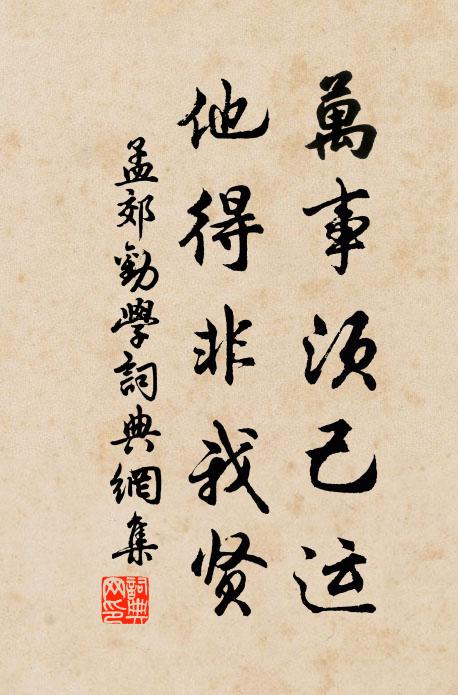 萬事须己运
他得非我贤
孟郊勸學詞典網集
詞典網印